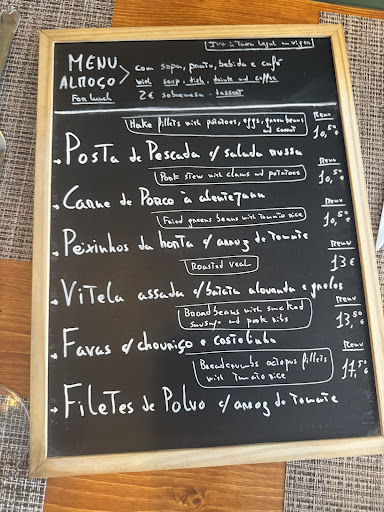 IVA à taxa legal em vigor
MENU ALMOÇO
For lunch
com sopa, prato, bebida e café
with soup, dish, drink and coffee
2€ sobremesa - dessert
Hake fillets with potatoes, eggs, green beans and carrot
Menu
10,50€
Posta de Pescada c/ salada russa
Pork stew with clams and potatoes
Menu
10,50€
Carne de Porco à alentejana
Fried greens beans with tomato rice
Menu
10,50€
Peixinhos da horta c/ arroz de tomate
Roasted veal
Menu
13€
Vitela assada c/ batata alourada e grelos
Broadbeans with smoked sausage and pork ribs
Menu
13,50€
Favas c/ chouriço e costelinha
Breadcrumbs octopus fillets with tomato rice
Menu
11,50€
Filetes de Polvo c/ arroz de tomate